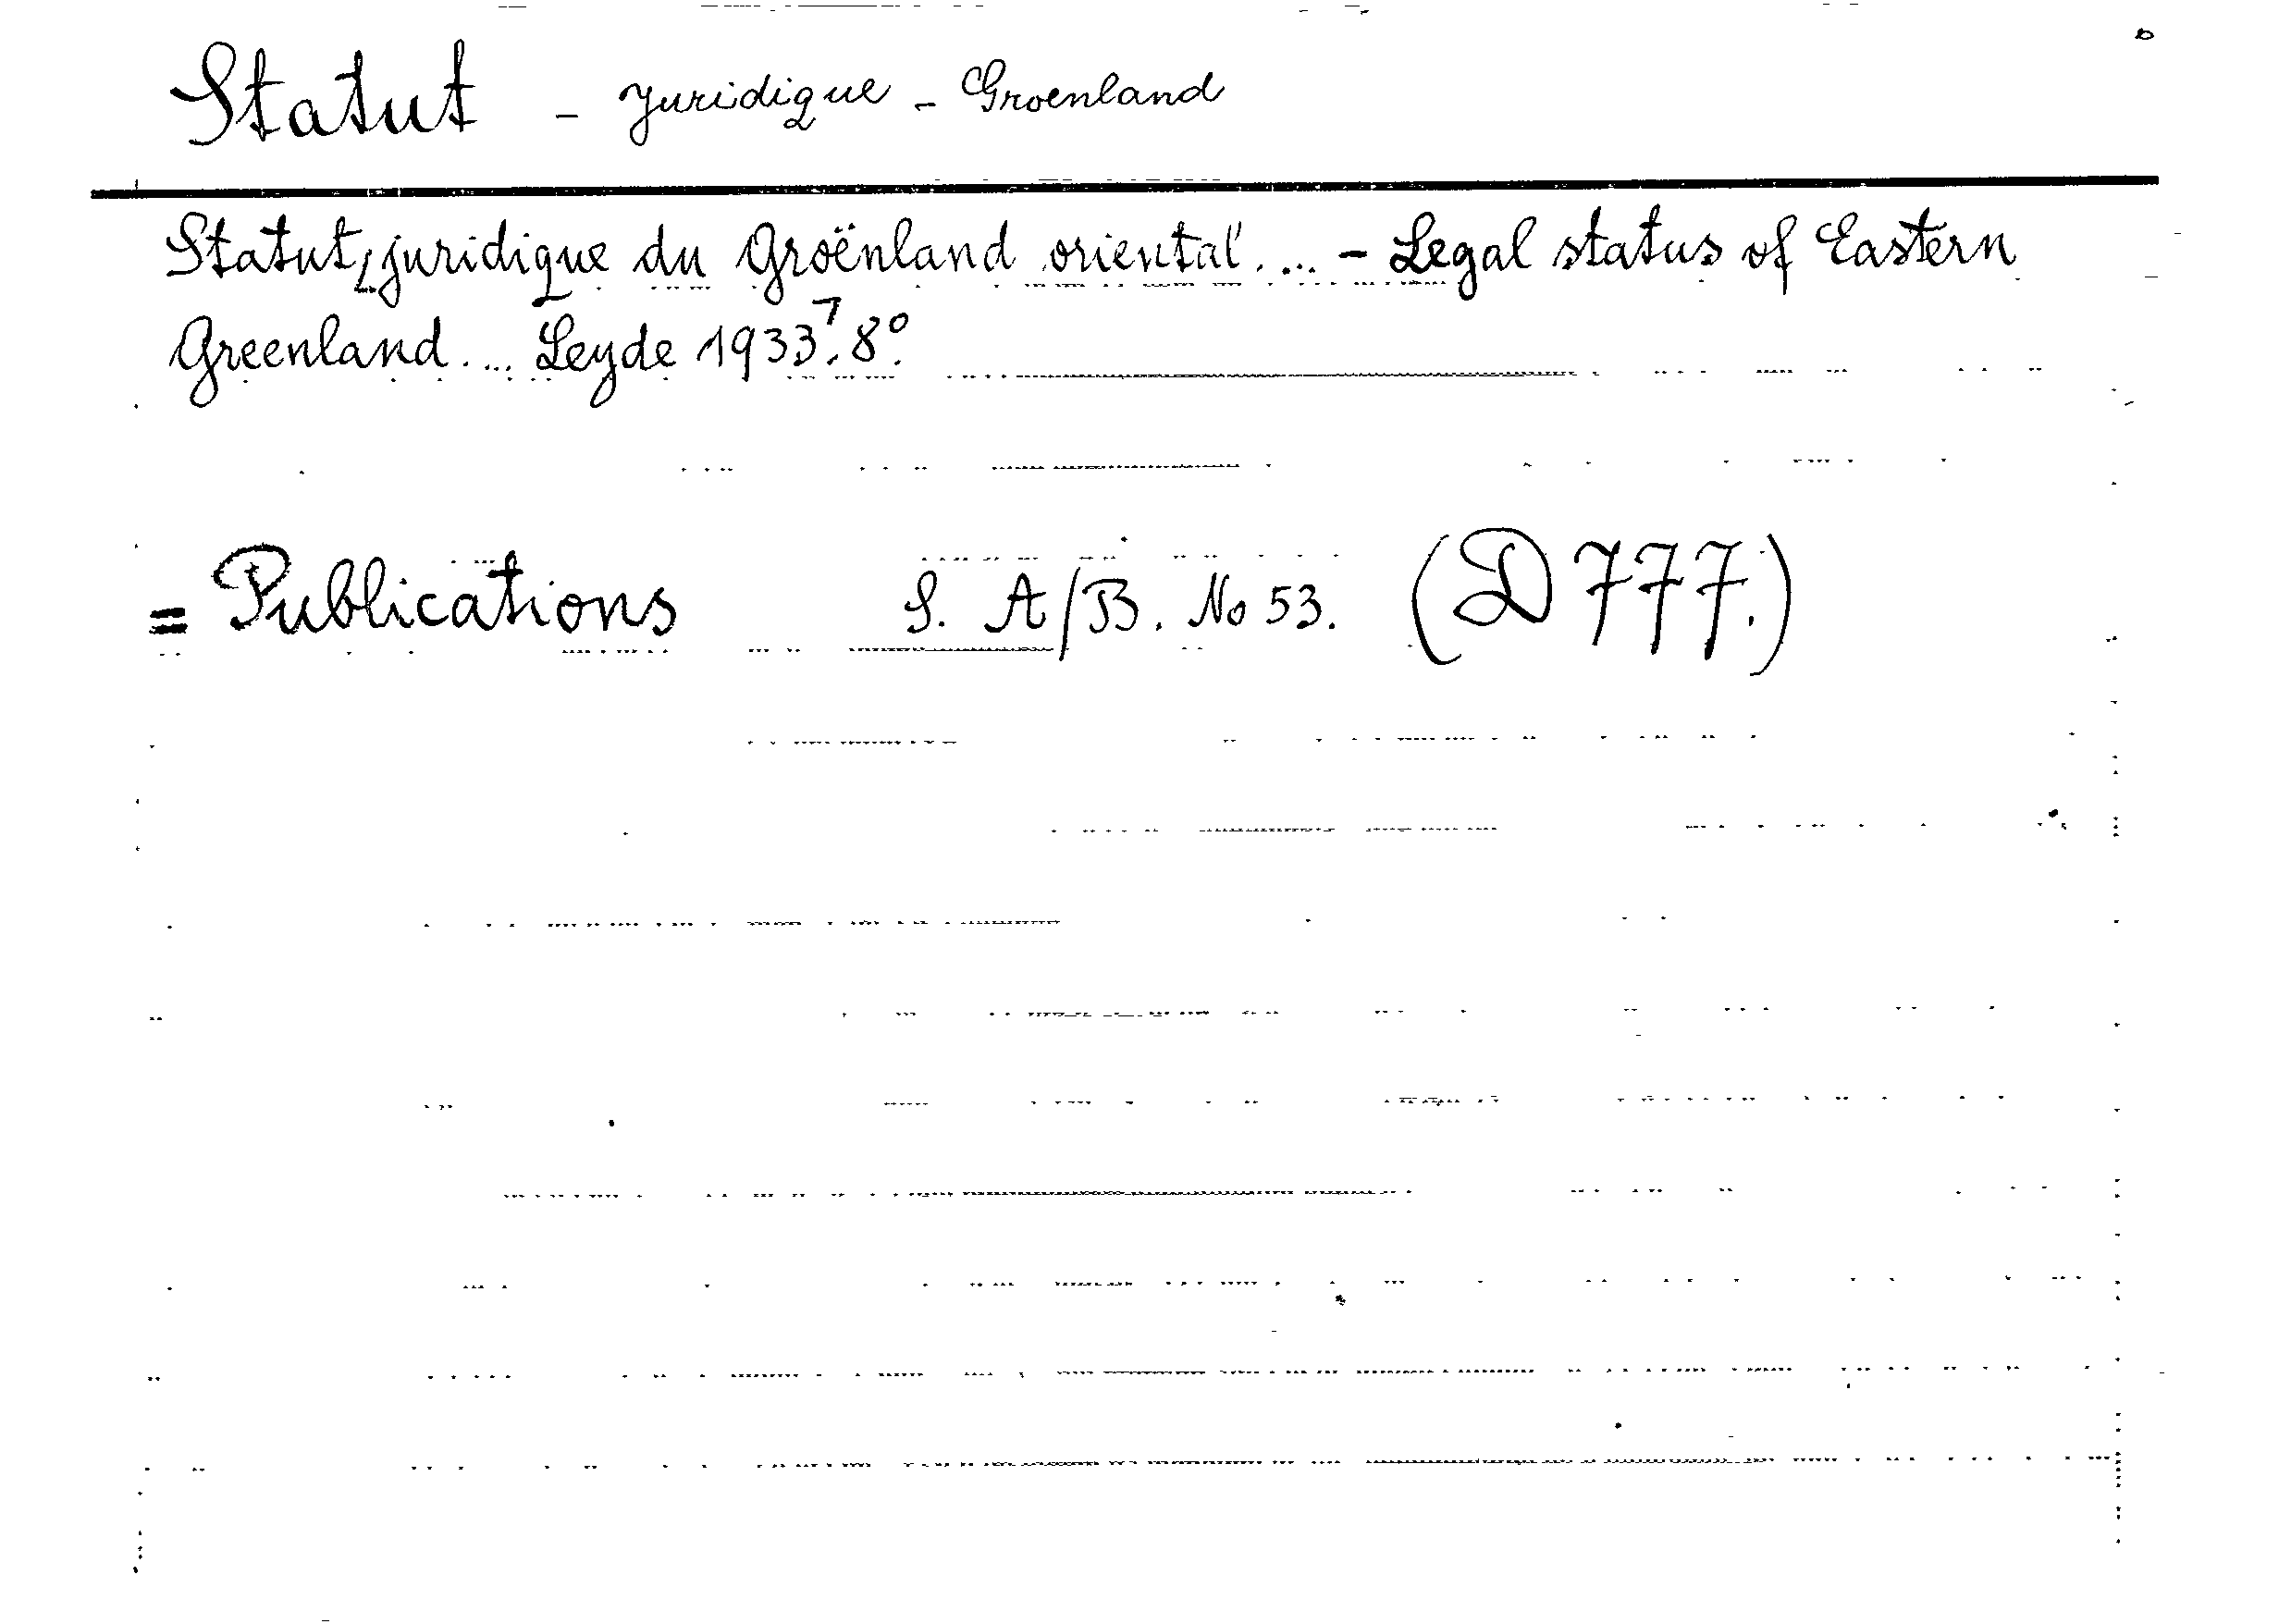 Statut - juridique - Groenland
[Statut juridique du Groënland oriental. ... - Legal status of Eastern
Greenland. ... Leyde 1933]. 8º.
= Publications S. A/B. No 53. (D 777.)